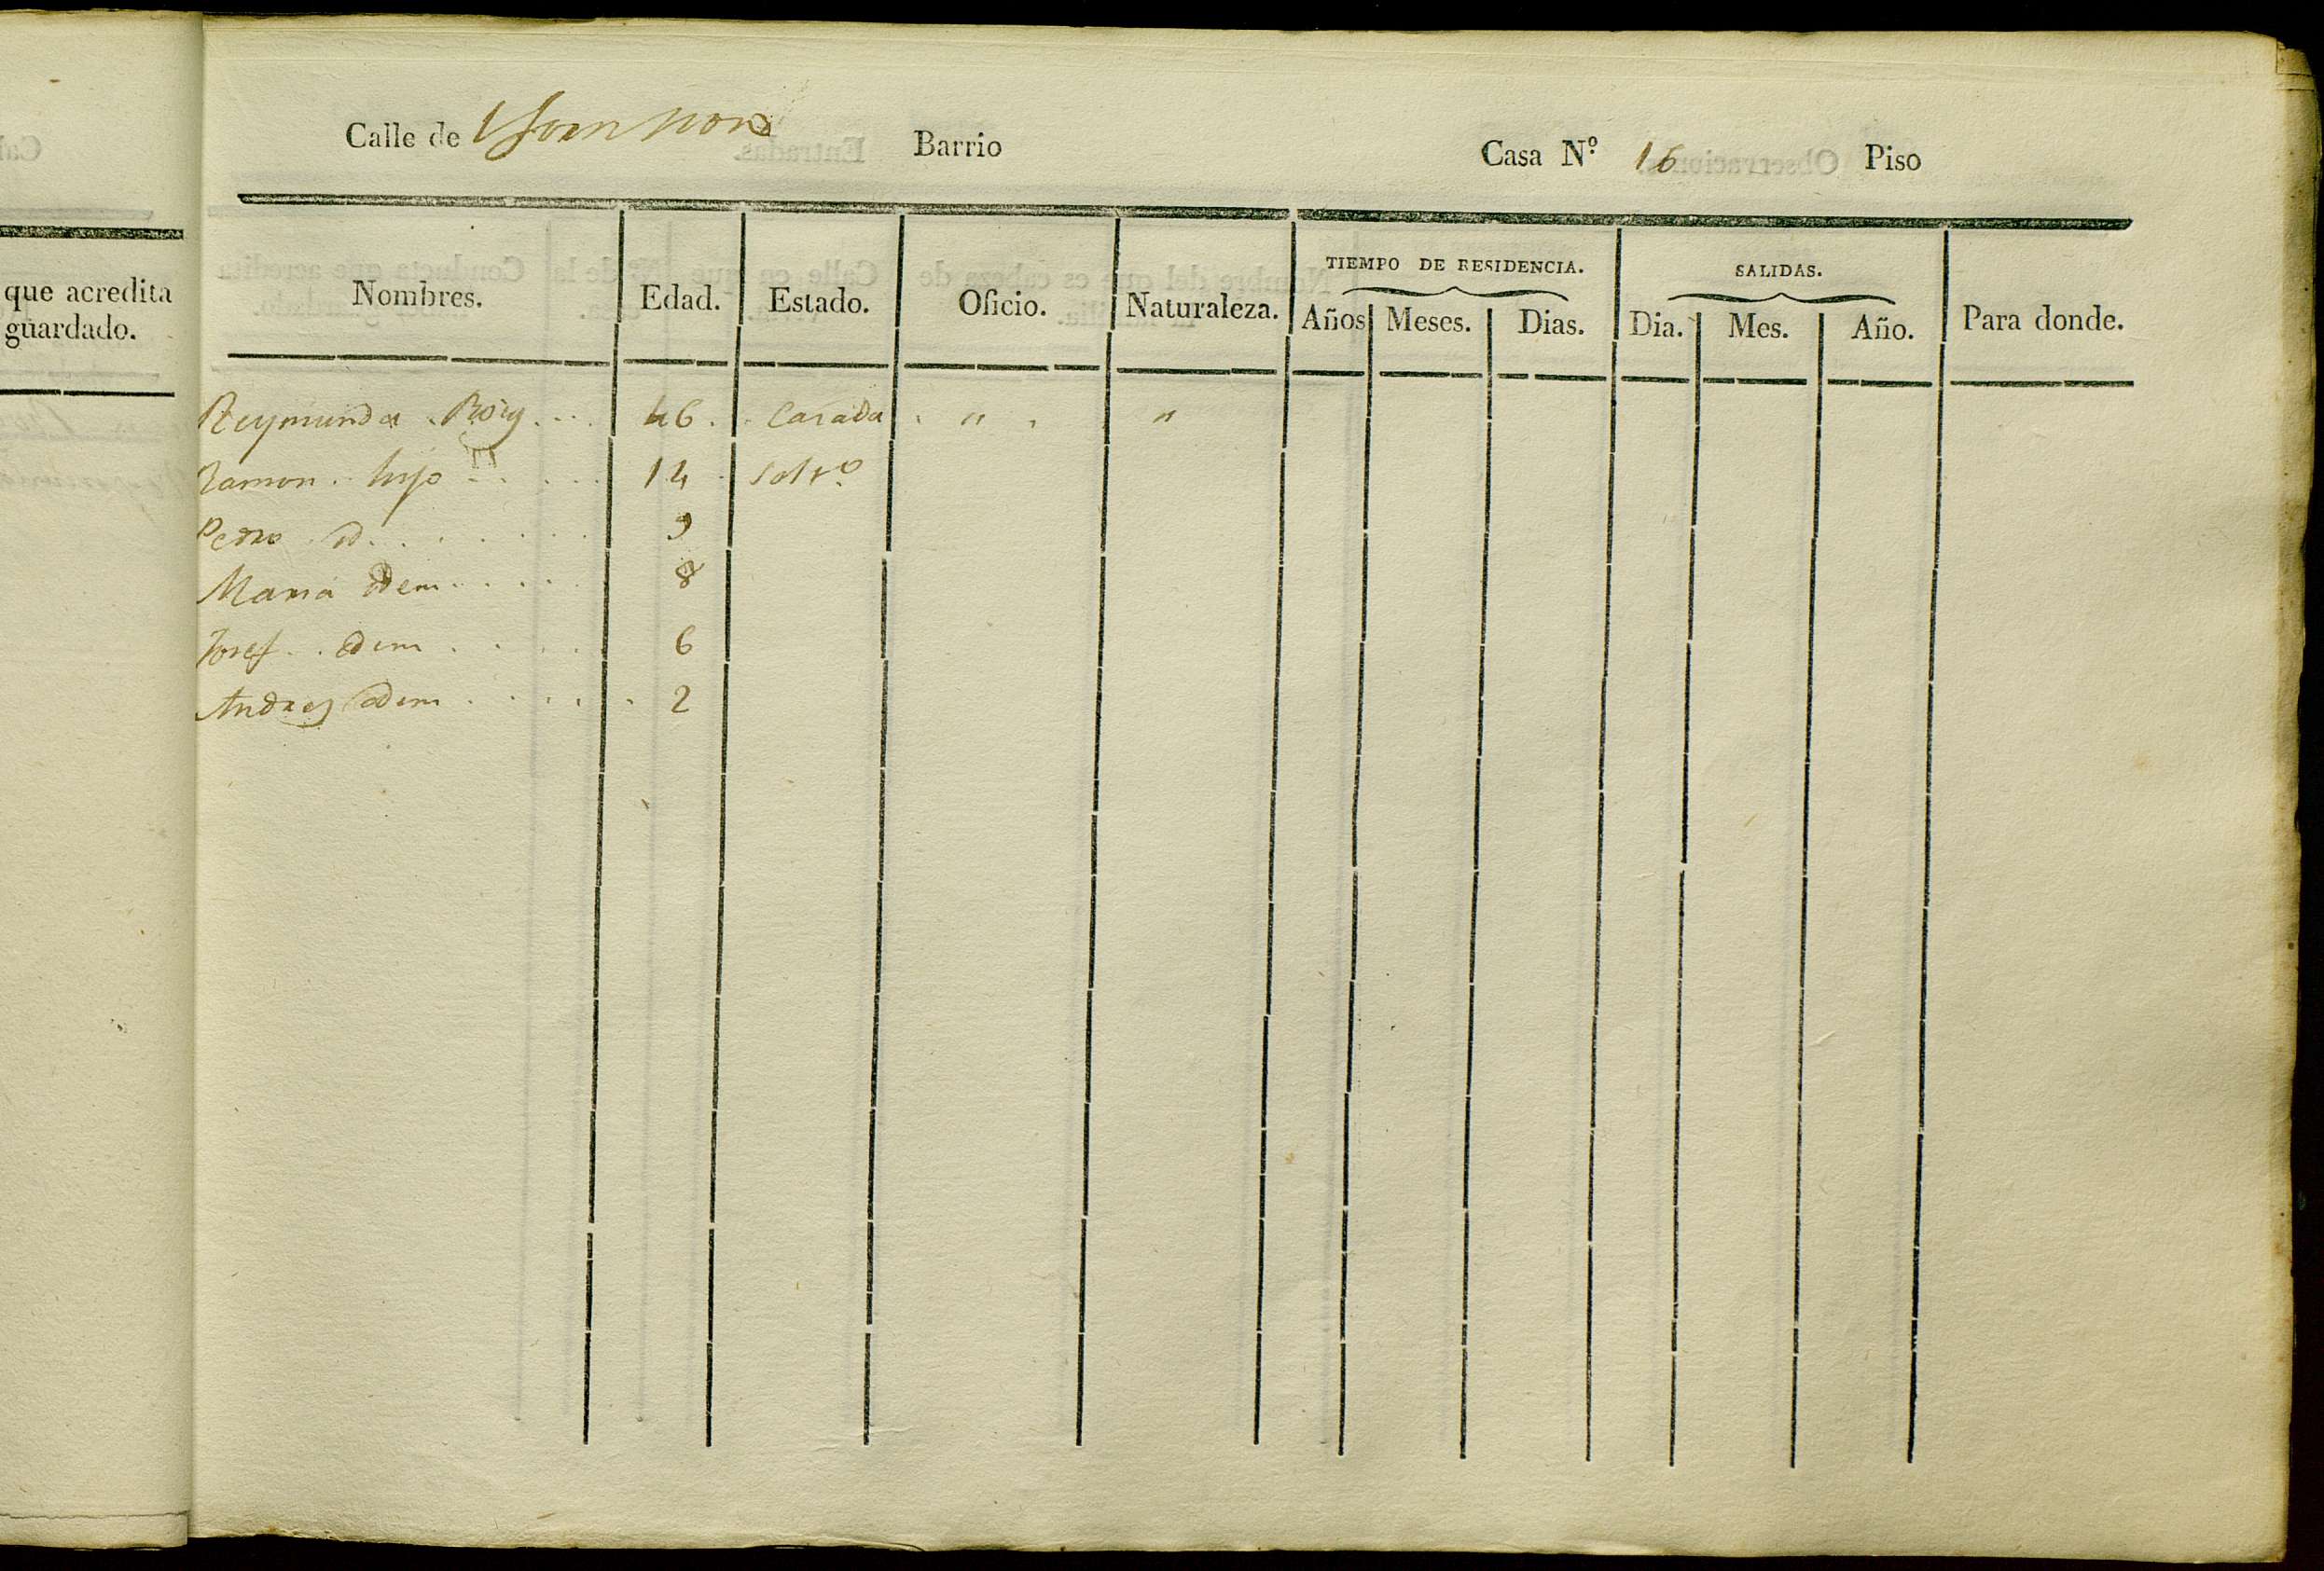 Calle de Barrio Casa N.º 16 Piso
que acredita
guardado.
TIEMPO DE RESIDENCIA. SALIDAS.
Nombres. Edad. Estado. Oficio. Naturaleza. Años Meses. Dias. Dia. Mes. Año. Para donde.
Reymunda Roig 46 Casada " "
Ramon hijo 14 Solt.º
Pedro id. 9
Maria Idem 8
Josef Idem 6
Andres Idem 2